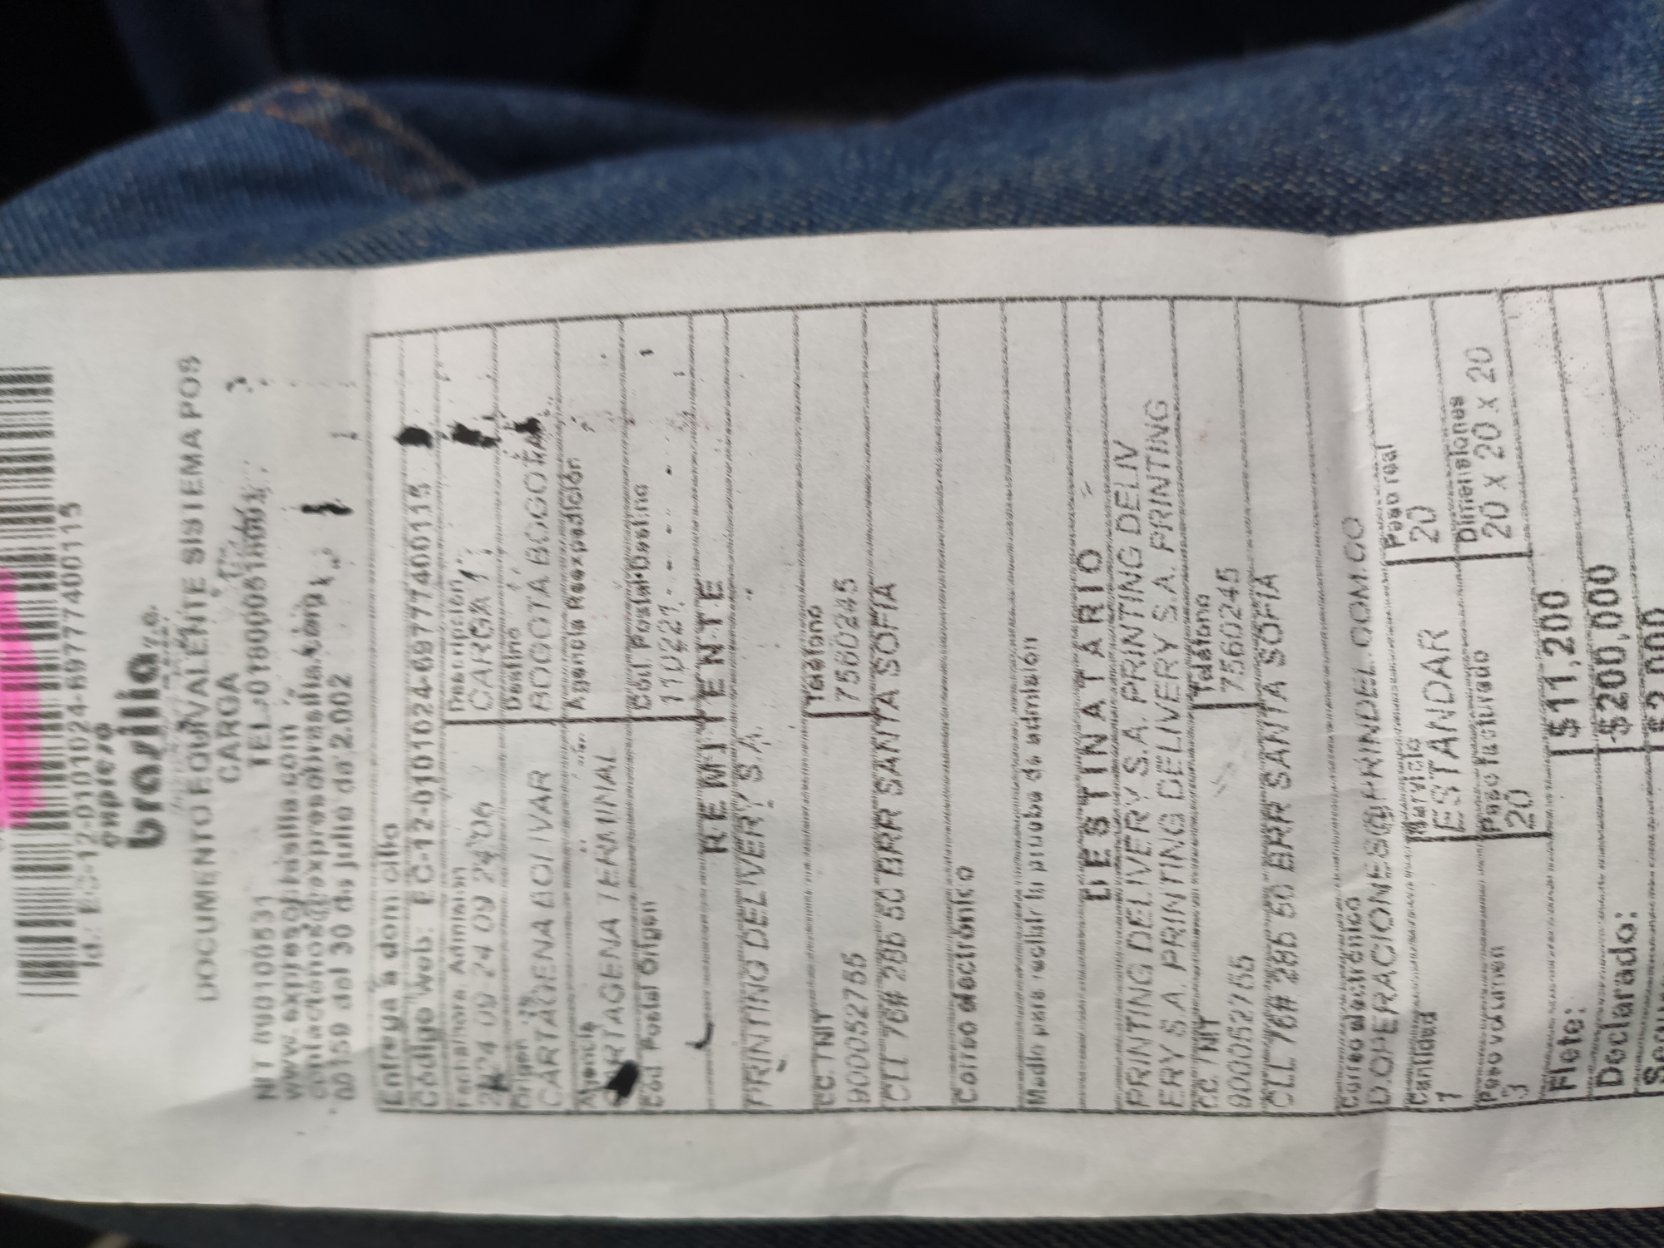 Id.: EC-12-0101024-6977400115
expreso
brasilia
DOCUMENTO EQUIVALENTE SISTEMA POS
CARGA
NIT 890100531
www.expresobrasilia.com
00159 del 30 de julio de 2.002
Entrega a domicilio
Código Web: EC-12-0101024-6977400115
Fecha/hora Admisión Descripción
24 09 24 09 24'06 CARGA 1
Origen Destino
CARTAGENA BOLIVAR BOGOTA BOGOTA
Agencia Agencia Reexpedición
CARTAGENA TERMINAL
Cód Postal Origen Cód. Postal Destino
110221
REMITENTE
PRINTING DELIVERY S.A.
CC. / NIT Teléfono
900052755 7560245
CLL 76# 28b 50 BRR SANTA SOFIA
Correo electrónico
Medio para recibir la prueba de admisión
DESTINATARIO
PRINTING DELIVERY S.A. PRINTING DELIV
ERY S.A. PRINTING DELIVERY S.A. PRINTING
CC. NIT Teléfono
900052755 7560245
CLL 76# 28b 50 BRR SANTA SOFIA
Correo electrónico
D.OPERACIONES@PRINDEL.COM.CO
Cantidad Servicio Peso real
1 ESTANDAR 20
Peso volumen Peso facturado Dimensiones
3 20 20 X 20 X 20
Flete: $11,200
Declarado: $200,000